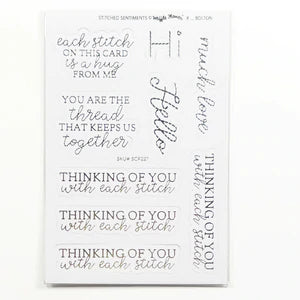 STITCHED SENTIMENTS ©
each stitch
ON THIS CARD
is a hug
FROM ME
Hi
much love
YOU ARE THE
thread
THAT KEEPS US
together
Hello
SKU# SCF221
THINKING OF YOU
with each stitch
THINKING OF YOU
with each stitch
THINKING OF YOU
with each stitch
THINKING OF YOU
with each stitch